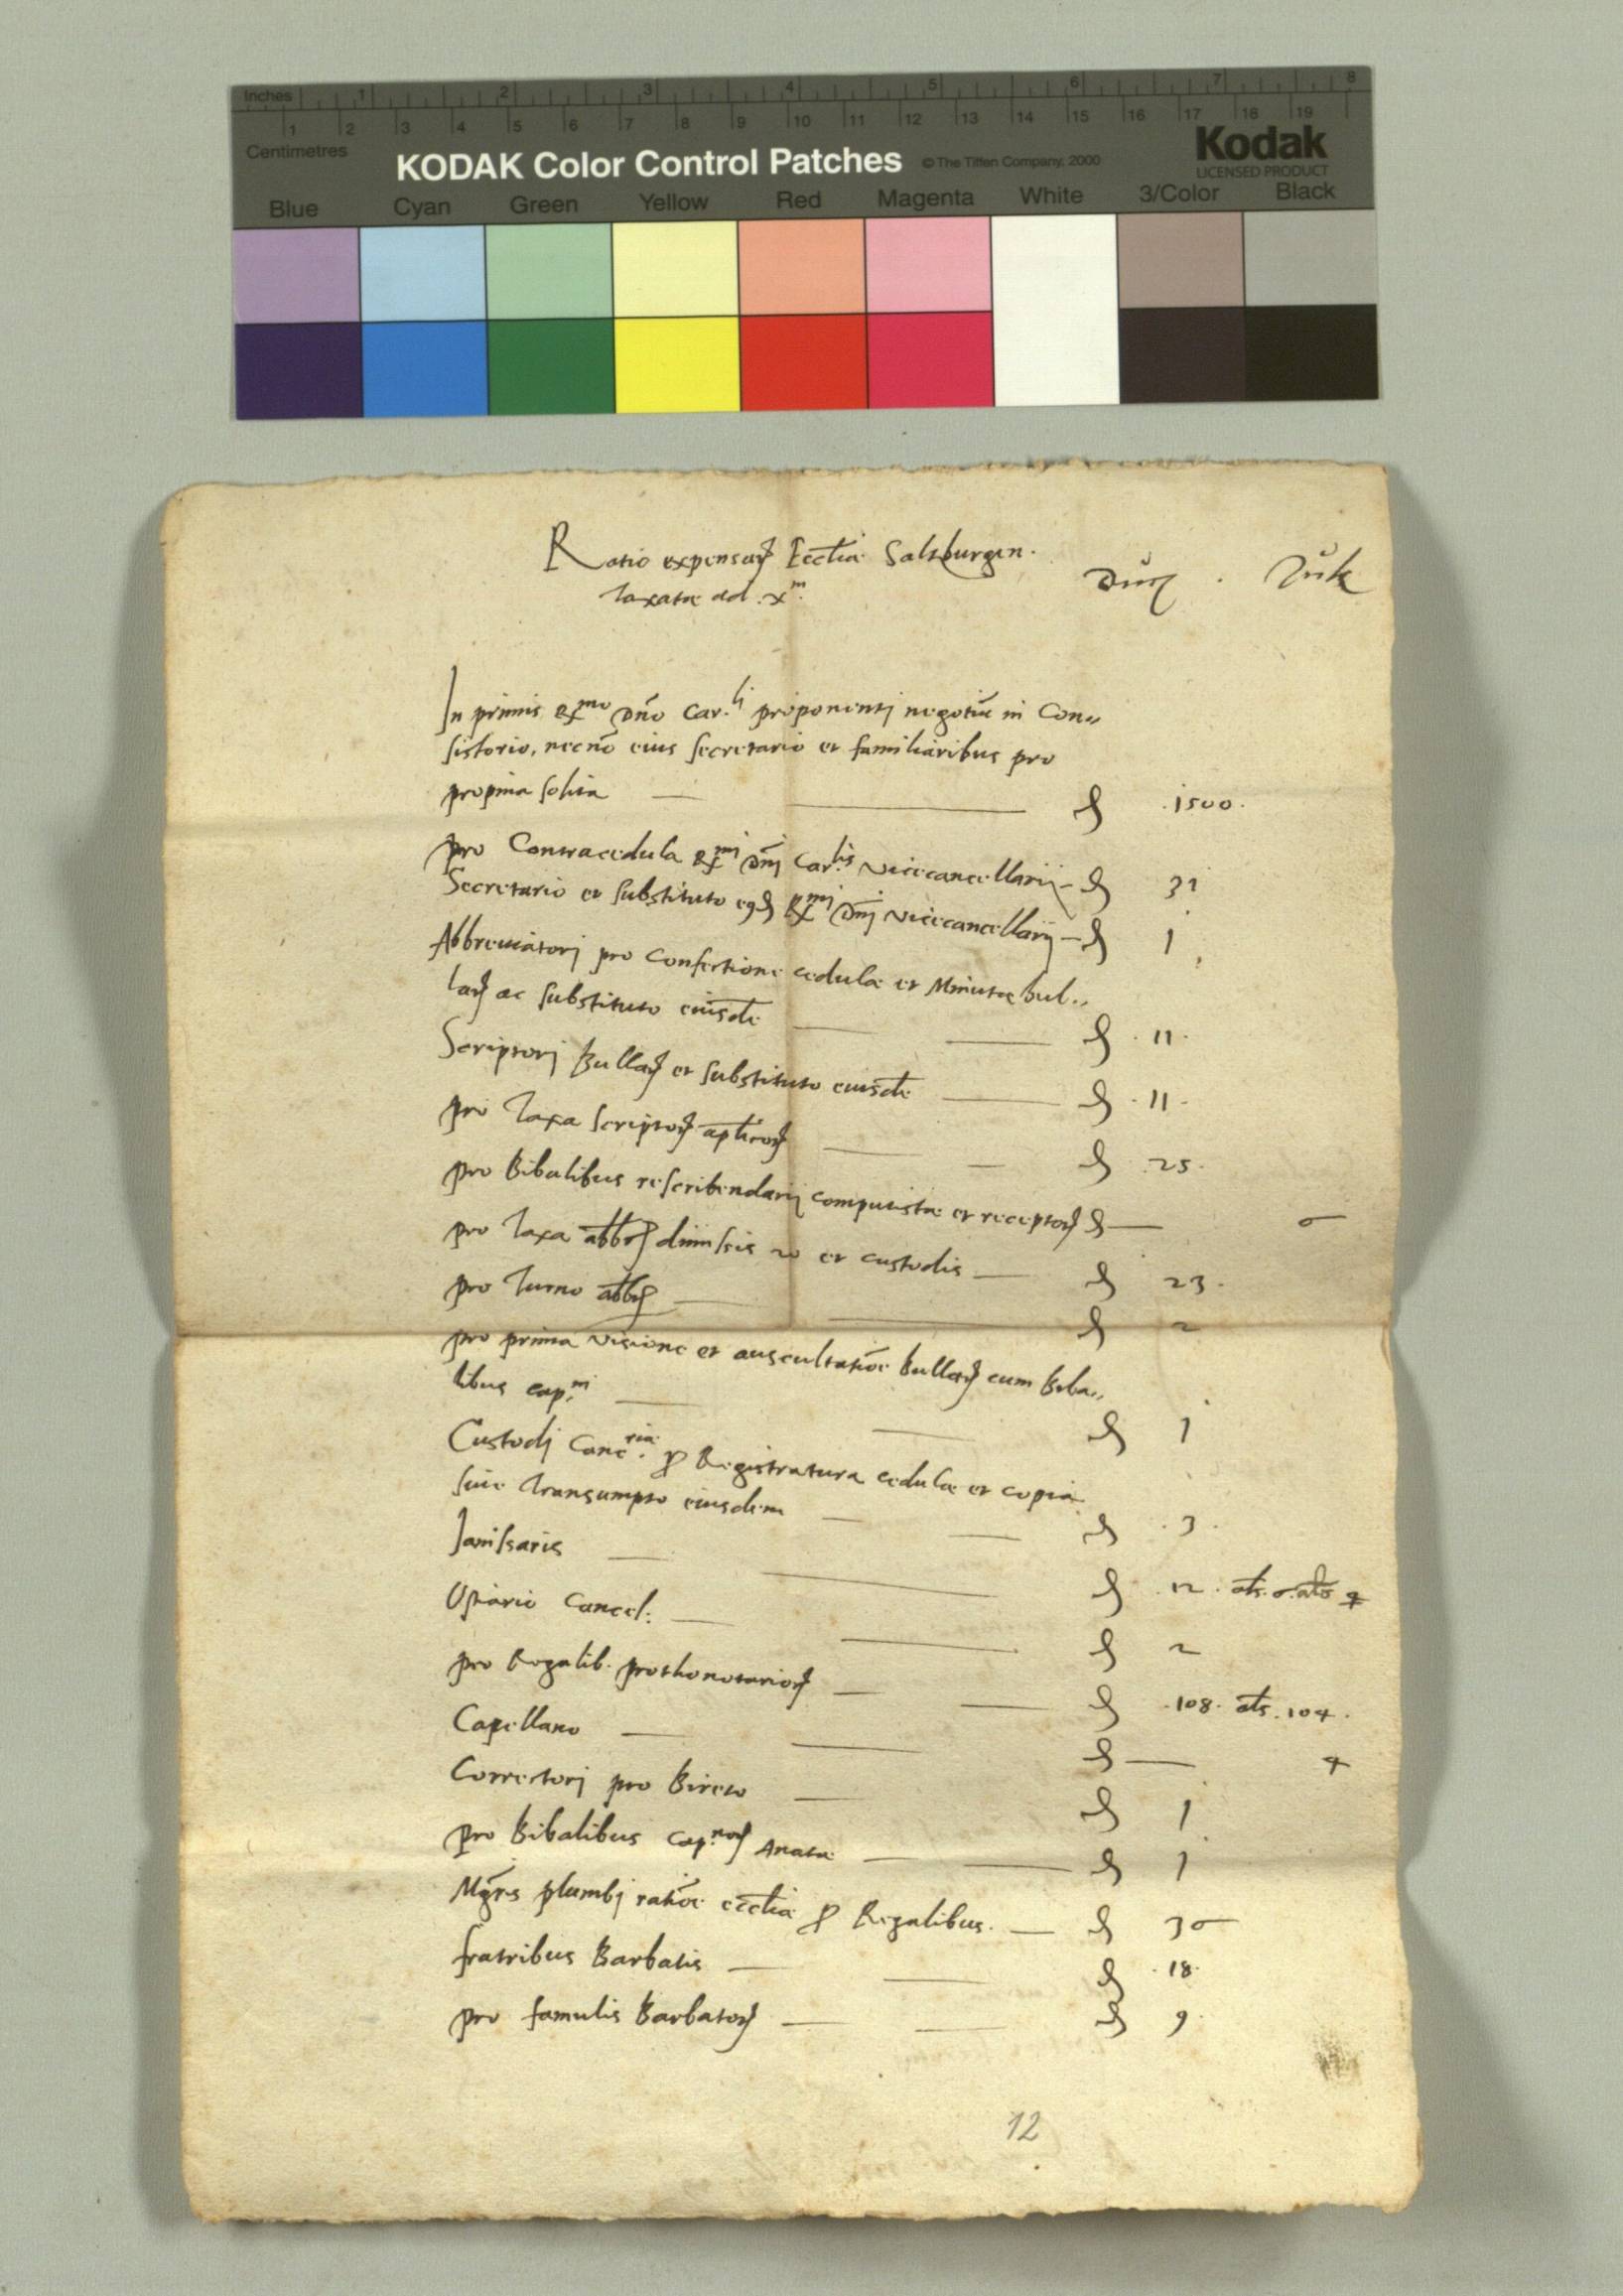 Inches 1 2 3 4 5 6 7 8
1 2 3 4 5 6 7 8 9 10 11 12 13 14 15 16 17 18 19
Centimetres
KODAK Color Control Patches © The Tiffen Company, 2000 Kodak
LICENSED PRODUCT
Blue Cyan Green Yellow Red Magenta White 3/Color Black
Ratio expensaꝝ Eccl̅iæ Salzburgen.
taxatæ ad .x^m.
In primis R^mo Dn̄o Car.^li proponenti negotiū in Con„
sistorio, necnō eius secretario et familiaribus pro
propina solita — — .1500.
pro Contracedula R^mi Dn̄j Car.^lis Vicecancellarij - 31
Secretario et substituto R^mi Dn̄j Vicecancellarij - 1
Abbreviatorj pro confectione cedulæ et Minutæ bul„
laꝝ ac substituto eiusdē — — . 11 .
Scriptorj Bullaꝝ et substituto eiusdē — . 11 .
pro Taxa scriptoꝝ ap̅licoꝝ — — . 25 .
pro Bibalibus rescribendarij computistæ et receptoꝝ —
pro Taxa abb̅ꝝ dimissis 20 et custodis — 23 .
pro Turno abb̅ꝝ — — 2
pro prima visione et auscultatiōe bullaꝝ cum biba„
libus cap.^ni — — 1
Custodj Canc^riæ. ꝓ Registratura cedulæ et copia
sive transumpto eiusdem — — . 3 .
Janissaris — — . 12 . al̅s. al̅s 4
Ostiario Cancel: — — 2
pro Regalib. prothonotarioꝝ — — . 108 . al̅s . 104 .
Capellano — — — 4
Correctorj pro Bireto — 1
pro Bibalibus Cap.^noꝝ Anatæ — — 1
Mgr̄is plumbj ratiōe eccl̅iæ ꝓ Regalibus. — 30
fratribus Barbatis — — . 18 .
pro famulis Barbatoꝝ — — 9 .
12